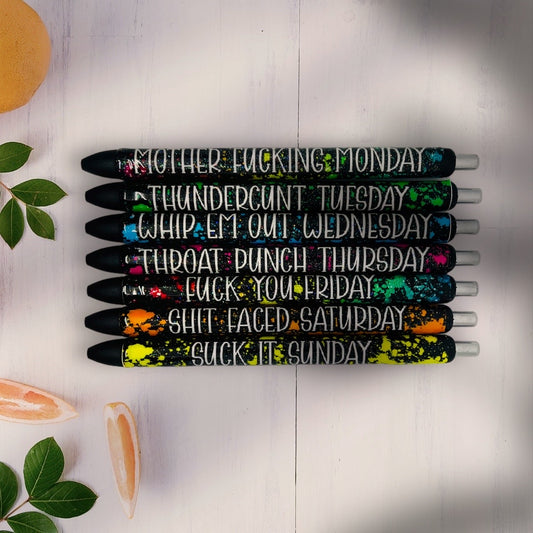 MOTHER FUCKING MONDAY
THUNDERCUNT TUESDAY
WHIP EM OUT WEDNESDAY
THROAT PUNCH THURSDAY
FUCK YOU FRIDAY
SHIT FACED SATURDAY
SUCK IT SUNDAY